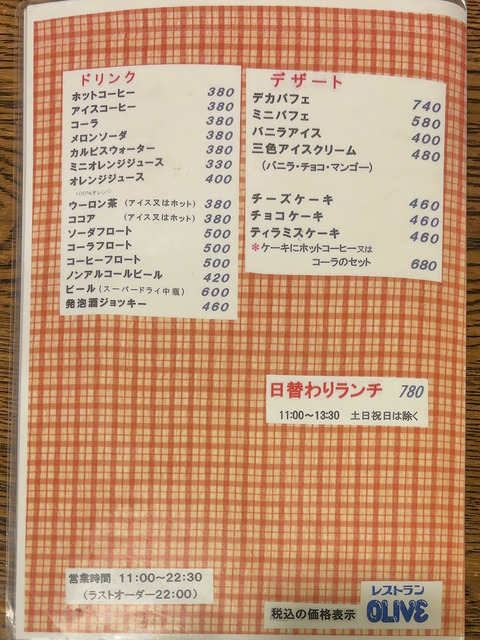 ドリンク
ホットコーヒー 380
アイスコーヒー 380
コーラ 380
メロンソーダ 380
カルピスウォーター 380
ミニオレンジジュース 330
オレンジジュース 400
100%オレンジ
ウーロン茶 (アイス又はホット) 380
ココア (アイス又はホット) 380
ソーダフロート 500
コーラフロート 500
コーヒーフロート 500
ノンアルコールビール 420
ビール (スーパードライ中瓶) 600
発泡酒ジョッキー 460
デザート
デカパフェ 740
ミニパフェ 580
バニラアイス 400
三色アイスクリーム 480
(バニラ・チョコ・マンゴー)
チーズケーキ 460
チョコケーキ 460
ティラミスケーキ 460
*ケーキにホットコーヒー又は
コーラのセット 680
日替わりランチ 780
11:00～13:30 土日祝日は除く
営業時間 11:00～22:30
(ラストオーダー22:00)
税込の価格表示
レストラン
OLIVE